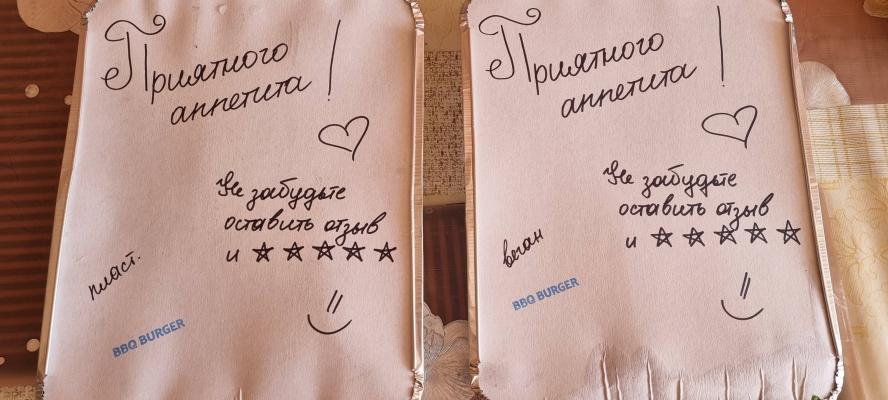 Приятного
аппетита!
Не забудьте
оставить отзыв
и ☆☆☆☆☆
пласт.
BBQ BURGER
Приятного
аппетита!
Не забудьте
оставить отзыв
и ☆☆☆☆☆
веган
BBQ BURGER